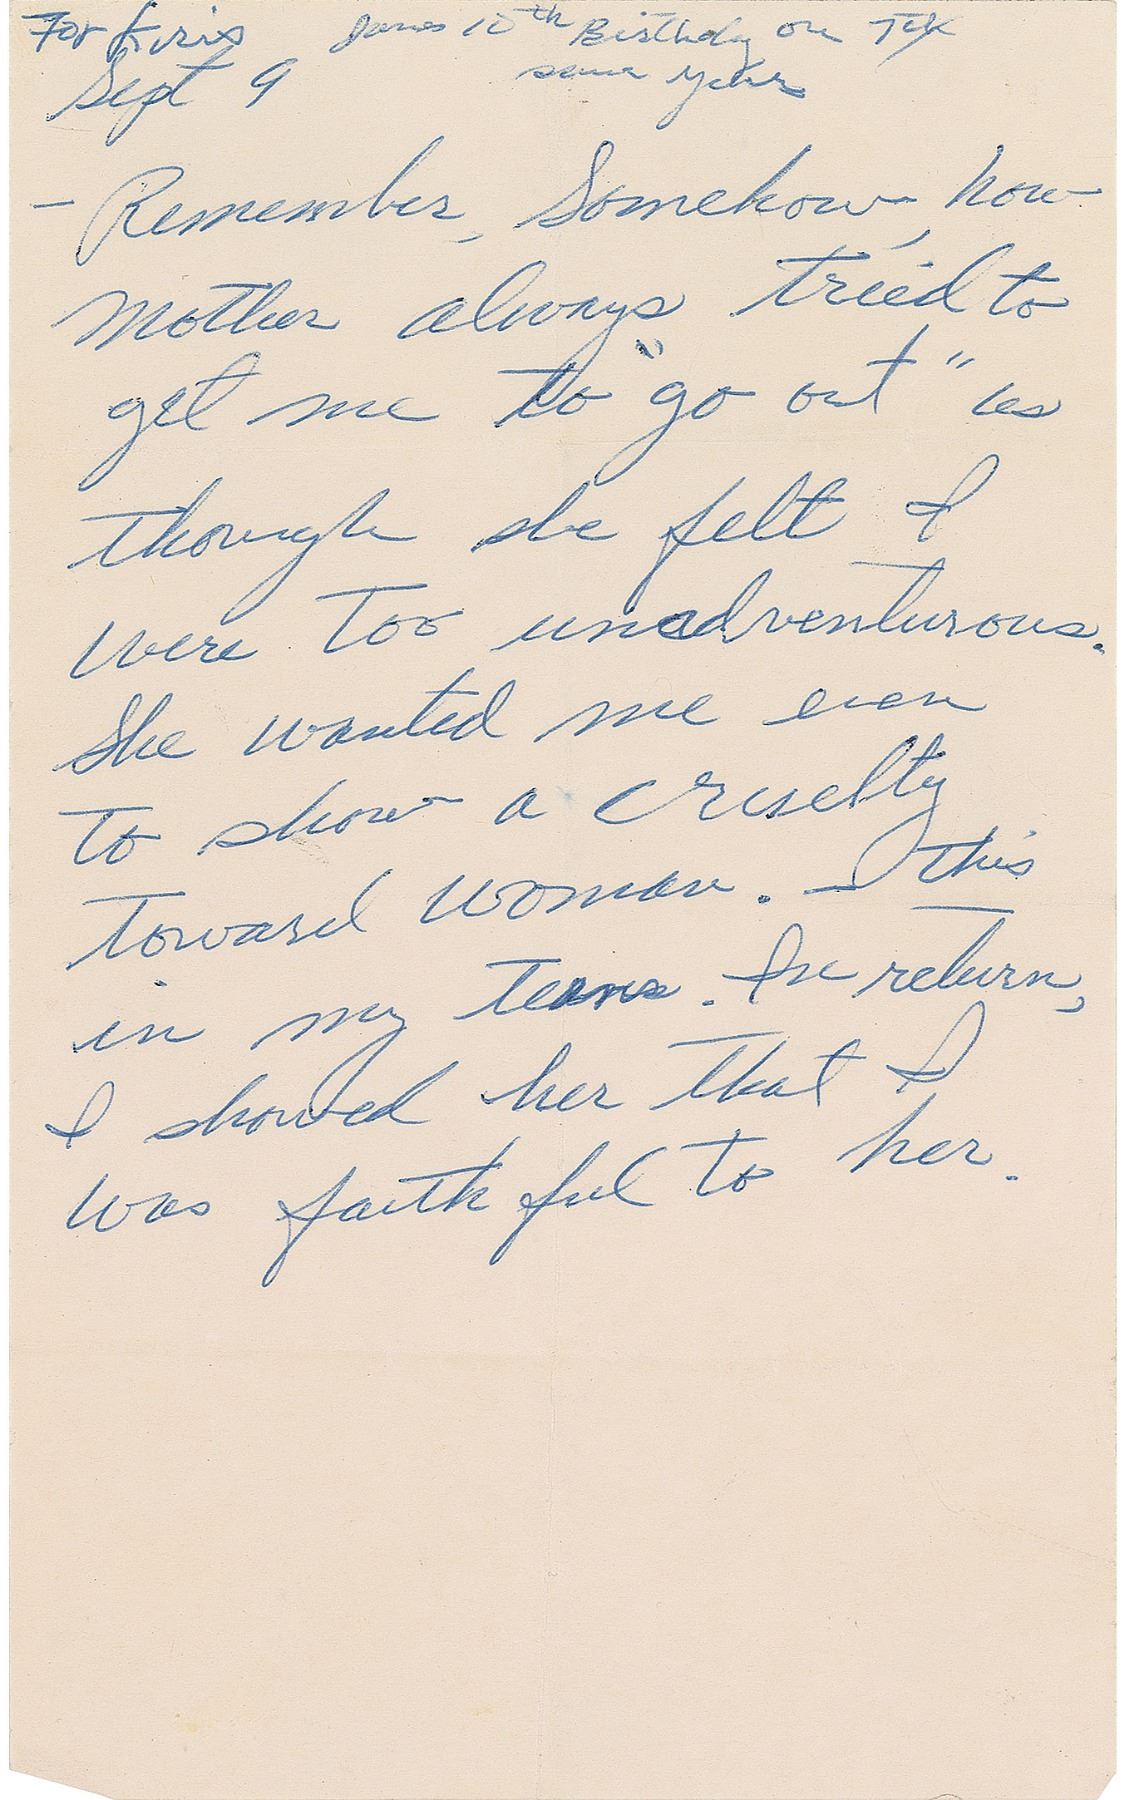 For Kris Janes 10th Birthday on
Sept 9 same year
- Remember, Somehow, how
mother always tried to
get me to "go out" as
though she felt I
were too unadventurous.
She wanted me even
to show a cruelty
toward woman. — This
in my teens. In return,
I showed her that I
was faithful to her.